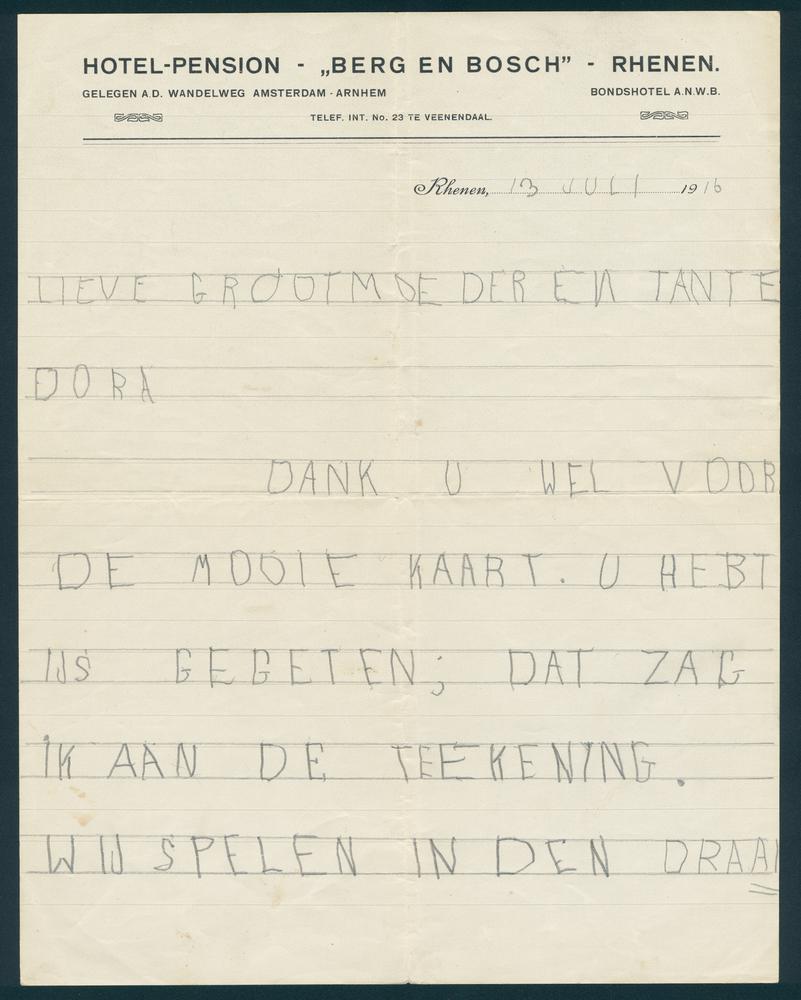 HOTEL-PENSION - „BERG EN BOSCH” - RHENEN.
GELEGEN A.D. WANDELWEG AMSTERDAM - ARNHEM BONDSHOTEL A.N.W.B.
TELEF. INT. No. 23 TE VEENENDAAL.
Rhenen, 13 JULI 1916
LIEVE GROOTMOEDER EN TANTE
DORA
DANK U WEL VOOR
DE MOOIE KAART. U HEBT
IJS GEGETEN; DAT ZAG
IK AAN DE TEEKENING.
WIJ SPELEN IN DEN DRAAI